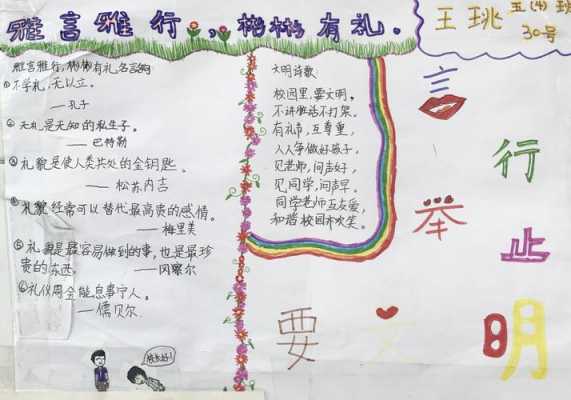 雅言雅行,彬彬有礼。
王珧 五(4)班
30号
雅言雅行,彬彬有礼名言
①不学礼,无以立。
——孔子
②无礼是无知的私生子。
——巴特勒
③礼貌是使人类共处的金钥匙。
——松苏内吉
④礼貌经常可以替代最高贵的感情。
——梅里美
⑤礼貌是最容易做到的事,也是最珍
贵的东西。——冈察尔
⑥礼仪周全能息事宁人。
——儒贝尔
文明诗歌
校园里,要文明。
不讲脏话不打架。
有礼节,互尊重,
人人争做好孩子。
见老师,问声好,
见同学,问声早。
同学老师互友爱,
和谐校园乐欢笑。
校长好!
言
行
举
止
要
文
明